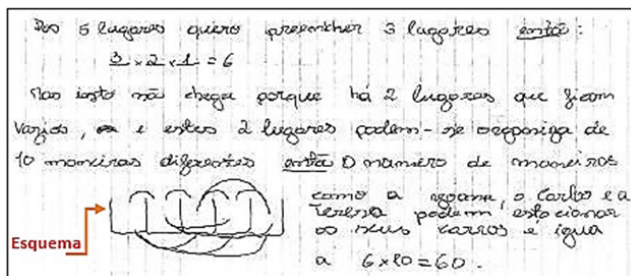 Dos 5 lugares quero preencher 3 lugares então:
3 x 2 x 1 = 6
Mas isto não chega porque há 2 lugares que ficam
vazios, e estes 2 lugares podem-se organiza de
10 maneiras diferentes então o número de maneiras
como a Joana, o Carlos e a
Teresa podem estacionar
os seus carros é igua
a 6 x 10 = 60.
Esquema